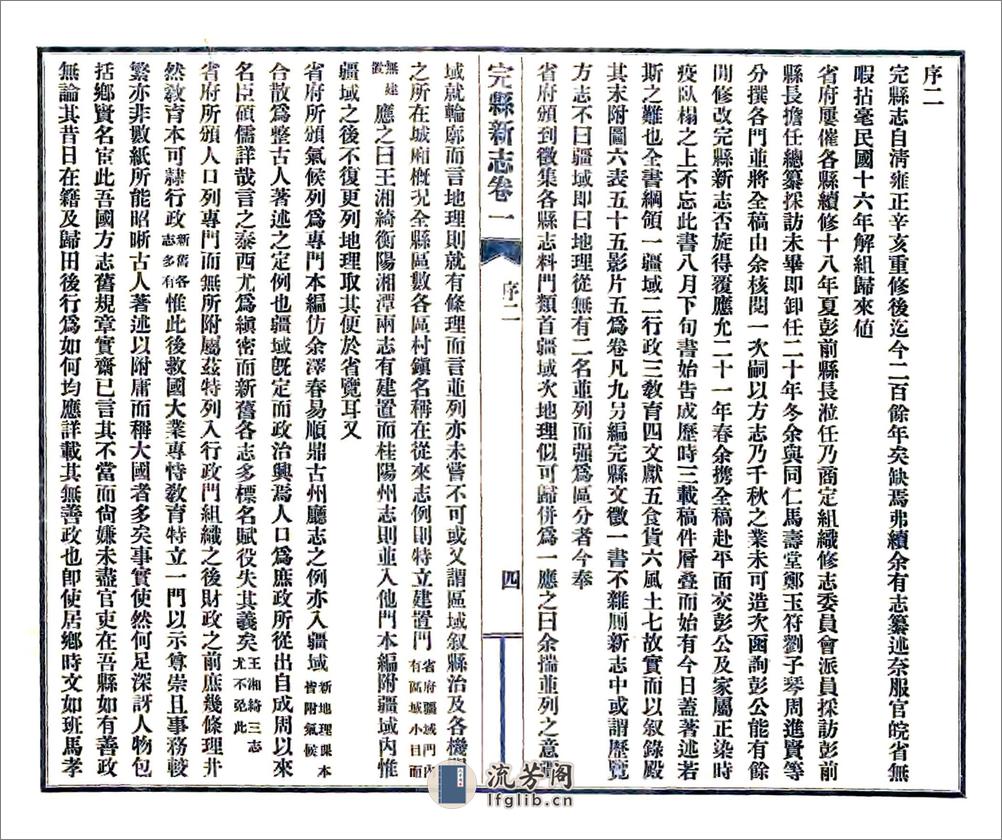 序二
完縣志自清雍正辛亥重修後迄今二百餘年矣缺焉弗續余有志纂述奈服官皖省無
暇拈毫民國十六年解組歸來値
省府屢催各縣續修十八年夏彭前縣長涖任乃商定組織修志委員會派員採訪彭前
縣長擔任總纂採訪未畢即卸任二十年冬余與同仁馬壽堂鄭玉符劉子琴周進賢等
分撰各門並將全稿由余核閱一次嗣以方志乃千秋之業未可造次函詢彭公能有餘
閒修改完縣新志否旋得覆應允二十一年春余攜全稿赴平面交彭公及家屬正染時
疫臥榻之上不忘此書八月下旬書始告成歷時三載稿件層叠而始有今日蓋著述若
斯之難也全書綱領一疆域二行政三敎育四文獻五食貨六風土七故實而以叙錄殿
其末附圖六表五十五影片五爲卷凡九另編完縣文徵一書不雜厠新志中或謂歷覽
方志不曰疆域即曰地理從無有二名並列而强爲區分者今奉
省府頒到徵集各縣志料門類首疆域次地理似可歸併爲一應之曰余揣並列之意
完縣新志卷一
序二
四
域就輪廓而言地理則就有條理而言並列亦未嘗不可或又謂區域叙縣治及各機
之所在城廂槪况全縣區數各區村鎭名稱在從來志例則特立建置門省府疆域門內有區域小目而
無建置應之曰王湘綺衡陽湘潭兩志有建置而桂陽州志則並入他門本編附疆域內惟
疆域之後不復更列地理取其便於省覽耳又
省府所頒氣候列爲專門本編仿余澤春易順鼎古州廳志之例亦入疆域新地理課本皆附氣候
合散爲整古人著述之定例也疆域旣定而政治興焉人口爲庶政所從出自成周以來
名臣碩儒詳哉言之泰西尤爲縝密而新舊各志多標名賦役失其義矣王湘綺三志尤不免此
省府所頒人口列專門而無所附屬茲特列入行政門組織之後財政之前庶幾條理井
然敎育本可隷行政新舊各志多有惟此後救國大業專恃敎育特立一門以示尊崇且事務較
繁亦非數紙所能昭晰古人著述以附庸而稱大國者多矣事實使然何足深訝人物包
括鄉賢名宦此吾國方志舊規章實齋已言其不當而尙嫌未盡官吏在吾縣如有善政
無論其昔日在籍及歸田後行爲如何均應詳載其無善政也卽使居鄉時文如班馬孝
流芳阁
lfglib.cn